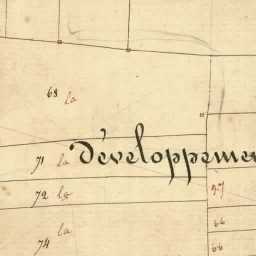 68 la
71 la développeme
72 la
57
66
la
74
66